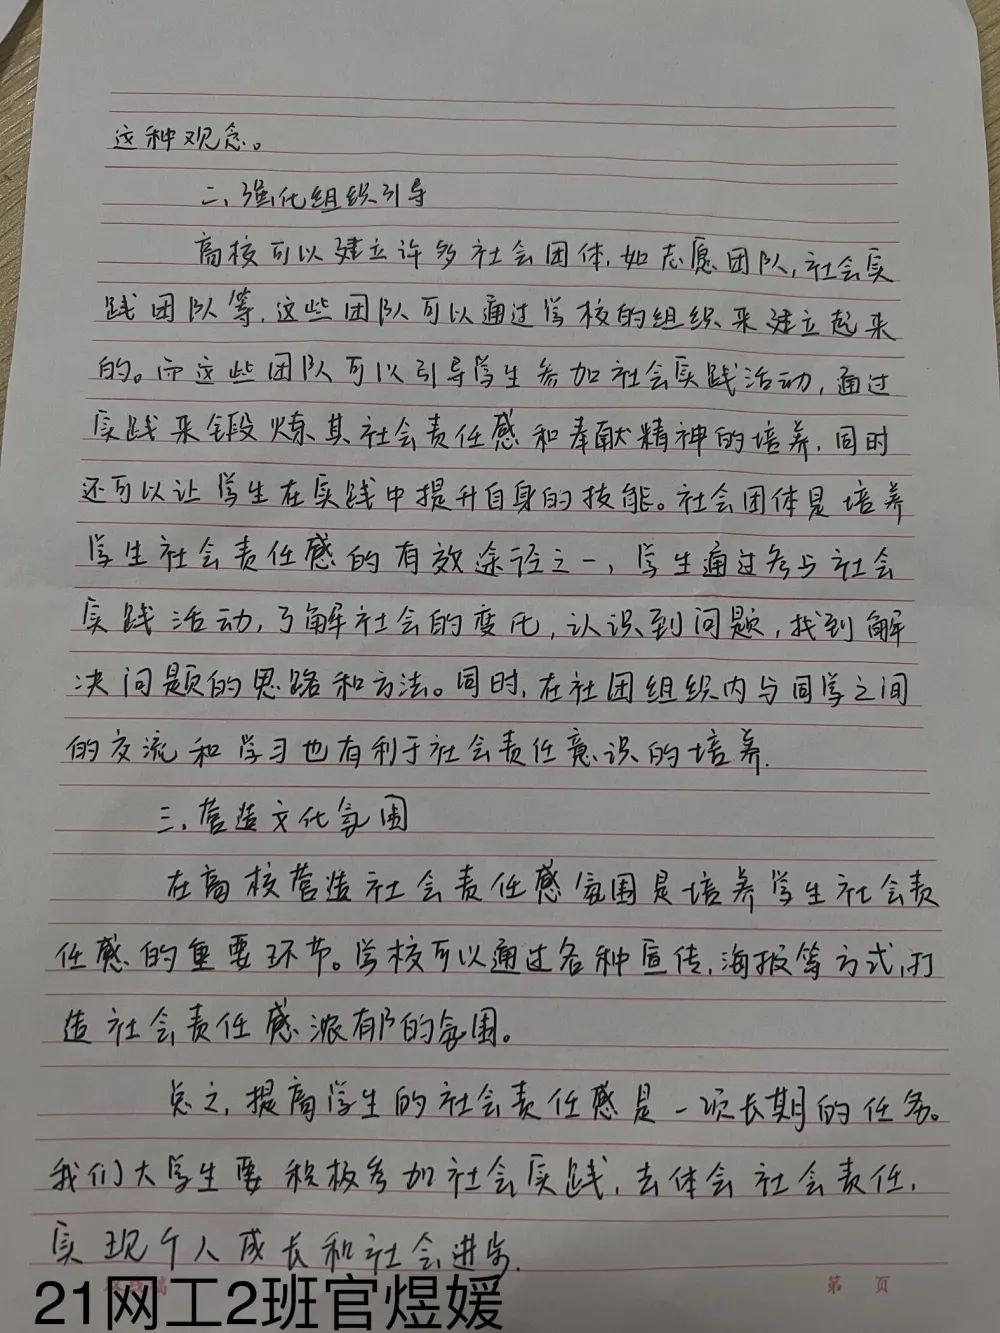 这种观念。
二、强化组织引导
高校可以建立许多社会团体,如志愿团队,社会实
践团队等,这些团队可以通过学校的组织来建立起来
的。而这些团队可以引导学生参加社会实践活动,通过
实践来锻炼其社会责任感和奉献精神的培养,同时
还可以让学生在实践中提升自身的技能。社会团体是培养
学生社会责任感的有效途径之一,学生通过参与社会
实践活动,了解社会的变化,认识到问题,找到解
决问题的思路和方法。同时,在社团组织内与同学之间
的交流和学习也有利于社会责任意识的培养.
三、营造文化氛围
在高校营造社会责任感氛围是培养学生社会责
任感的重要环节。学校可以通过各种宣传,海报等方式,打
造社会责任感浓郁的氛围。
总之,提高学生的社会责任感是一项长期的任务。
我们大学生要积极参加社会实践,去体会社会责任,
实现个人成长和社会进步.
第 页
21网工2班官煜媛